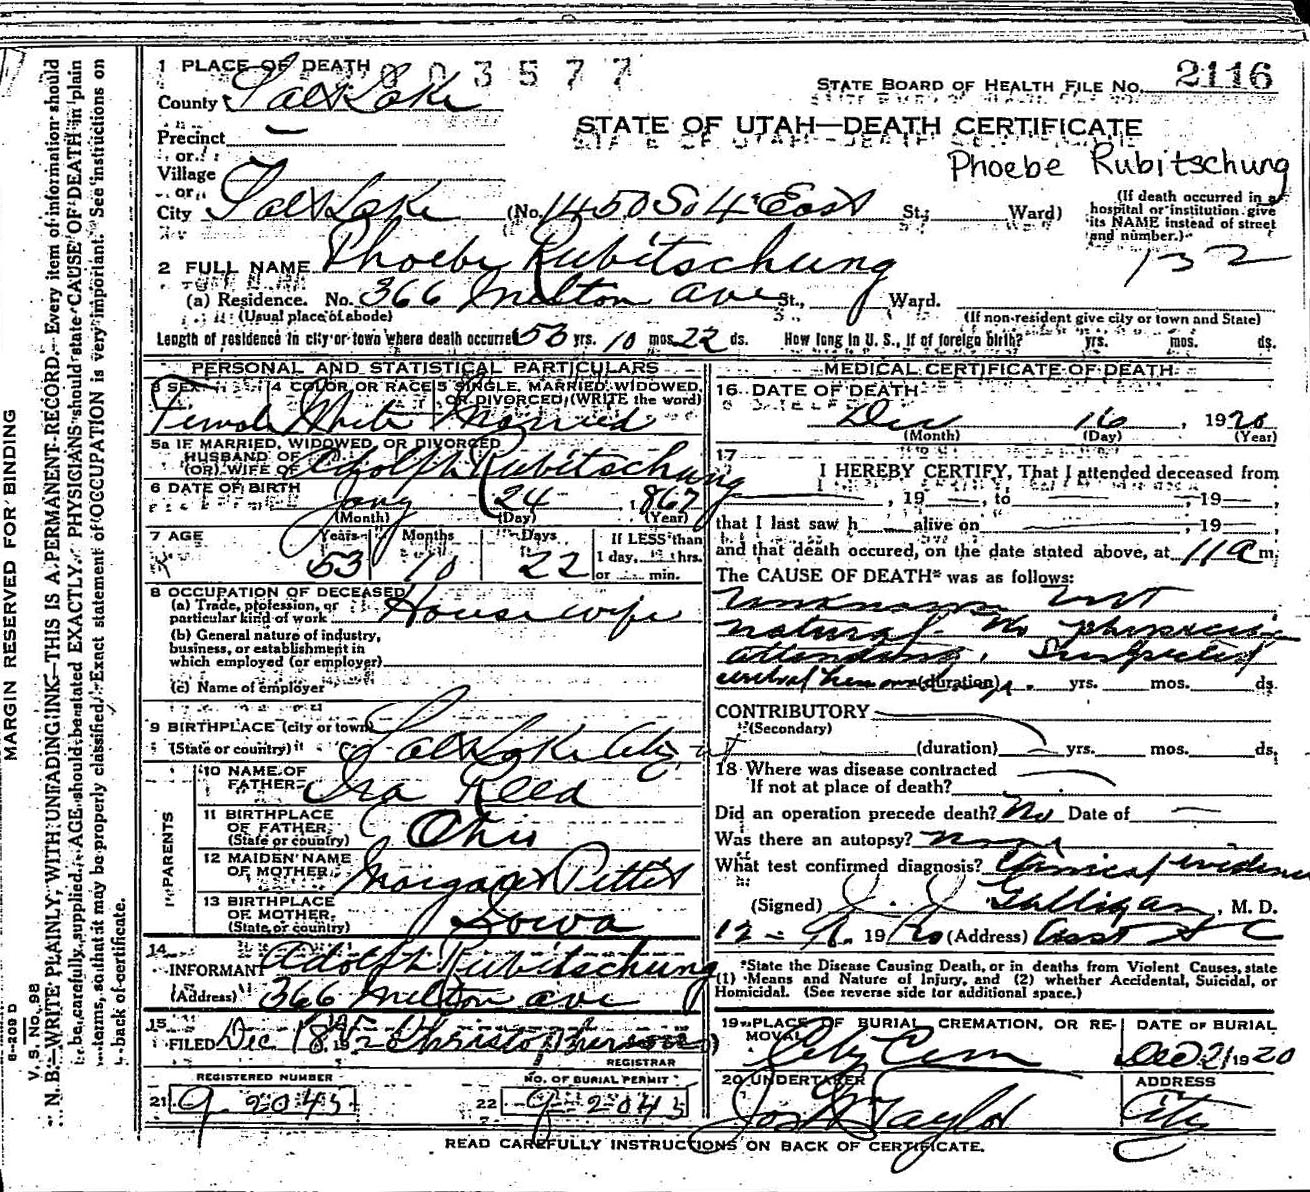 MARGIN RESERVED FOR BINDING
N. B.—WRITE PLAINLY, WITH UNFADING INK—THIS IS A PERMANENT RECORD. Every item of information should
be carefully supplied. AGE should be stated EXACTLY. PHYSICIANS should state CAUSE OF DEATH in plain
terms, so that it may be properly classified. Exact statement of OCCUPATION is very important. See instructions on
back of certificate.
V. S. No. 98
1 PLACE OF DEATH
3577
STATE BOARD OF HEALTH FILE No. 2116
County Salt Lake
STATE OF UTAH—DEATH CERTIFICATE
Precinct
Phoebe Rubitschung
or
Village
or
City Salt Lake (No. 1450 So 4" East St.; Ward)
(If death occurred in a
hospital or institution give
its NAME instead of street
and number.)
132
2 FULL NAME Phoebe Rubitschung
(a) Residence. No. 366 Melton ave St., Ward.
(Usual place of abode) (If non-resident give city or town and State)
Length of residence in city or town where death occurred 53 yrs. 10 mos. 22 ds. How long in U. S., if of foreign birth? yrs. mos. ds.
PERSONAL AND STATISTICAL PARTICULARS
3 SEX 4 COLOR OR RACE 5 SINGLE, MARRIED, WIDOWED,
OR DIVORCED, (WRITE the word)
Female White Married
5a IF MARRIED, WIDOWED, OR DIVORCED
HUSBAND OF
(OR) WIFE OF Adolph Rubitschung
6 DATE OF BIRTH Jany 24, 1867
(Month) (Day) (Year)
7 AGE Years Months Days If LESS than
1 day, hrs.
53 10 22 or min.
8 OCCUPATION OF DECEASED
(a) Trade, profession, or
particular kind of work Housewife
(b) General nature of industry,
business, or establishment in
which employed (or employer)
(c) Name of employer
9 BIRTHPLACE (city or town)
(State or country) Salt Lake City, ut
PARENTS
10 NAME OF
FATHER Ira Reed
11 BIRTHPLACE
OF FATHER
(State or country) Ohio
12 MAIDEN NAME
OF MOTHER Margaret Pettit
13 BIRTHPLACE
OF MOTHER
(State or country) Iowa
14
INFORMANT Adolph Rubitschung
(Address) 366 Melton ave
15
FILED Dec 18
REGISTRAR
REGISTERED NUMBER NO. OF BURIAL PERMIT
21 9 2045 22 9 2045
MEDICAL CERTIFICATE OF DEATH
16 DATE OF DEATH
Dec 16, 1920
(Month) (Day) (Year)
17
I HEREBY CERTIFY, That I attended deceased from
, 19 , to , 19
that I last saw h alive on , 19
and that death occured, on the date stated above, at 11 a m.
The CAUSE OF DEATH* was as follows:
Unknown but
natural. No physician
attendant. Suspected
cerebral hemorrhage. (duration) yrs. mos. ds.
CONTRIBUTORY
(Secondary)
(duration) yrs. mos. ds.
18 Where was disease contracted
If not at place of death?
Did an operation precede death? No Date of
Was there an autopsy? None
What test confirmed diagnosis? Clinical evidence
(Signed) J. J. Galligan, M. D.
1920 (Address)
*State the Disease Causing Death, or in deaths from Violent Causes, state
(1) Means and Nature of Injury, and (2) whether Accidental, Suicidal, or
Homicidal. (See reverse side for additional space.)
19 PLACE OF BURIAL, CREMATION, OR RE-
MOVAL DATE OF BURIAL
City Cem Dec 21 1920
20 UNDERTAKER ADDRESS
Jos Wm Taylor City
READ CAREFULLY INSTRUCTIONS ON BACK OF CERTIFICATE.